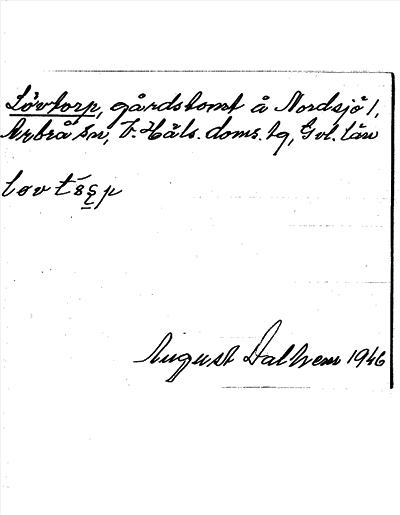 Lövtorp, gårdstomt å Nordsjö 1,
Arbrå sn, V. Häls. doms. tg, Gvl. län
August Dalhem 1946